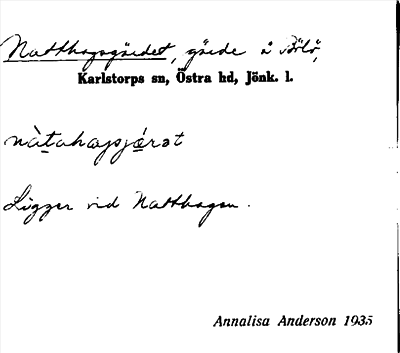 Natthagsgärdet, gärde å
Karlstorps sn, Östra hd, Jönk. l.
Ligger vid Natthagen.
Annalisa Anderson 1935